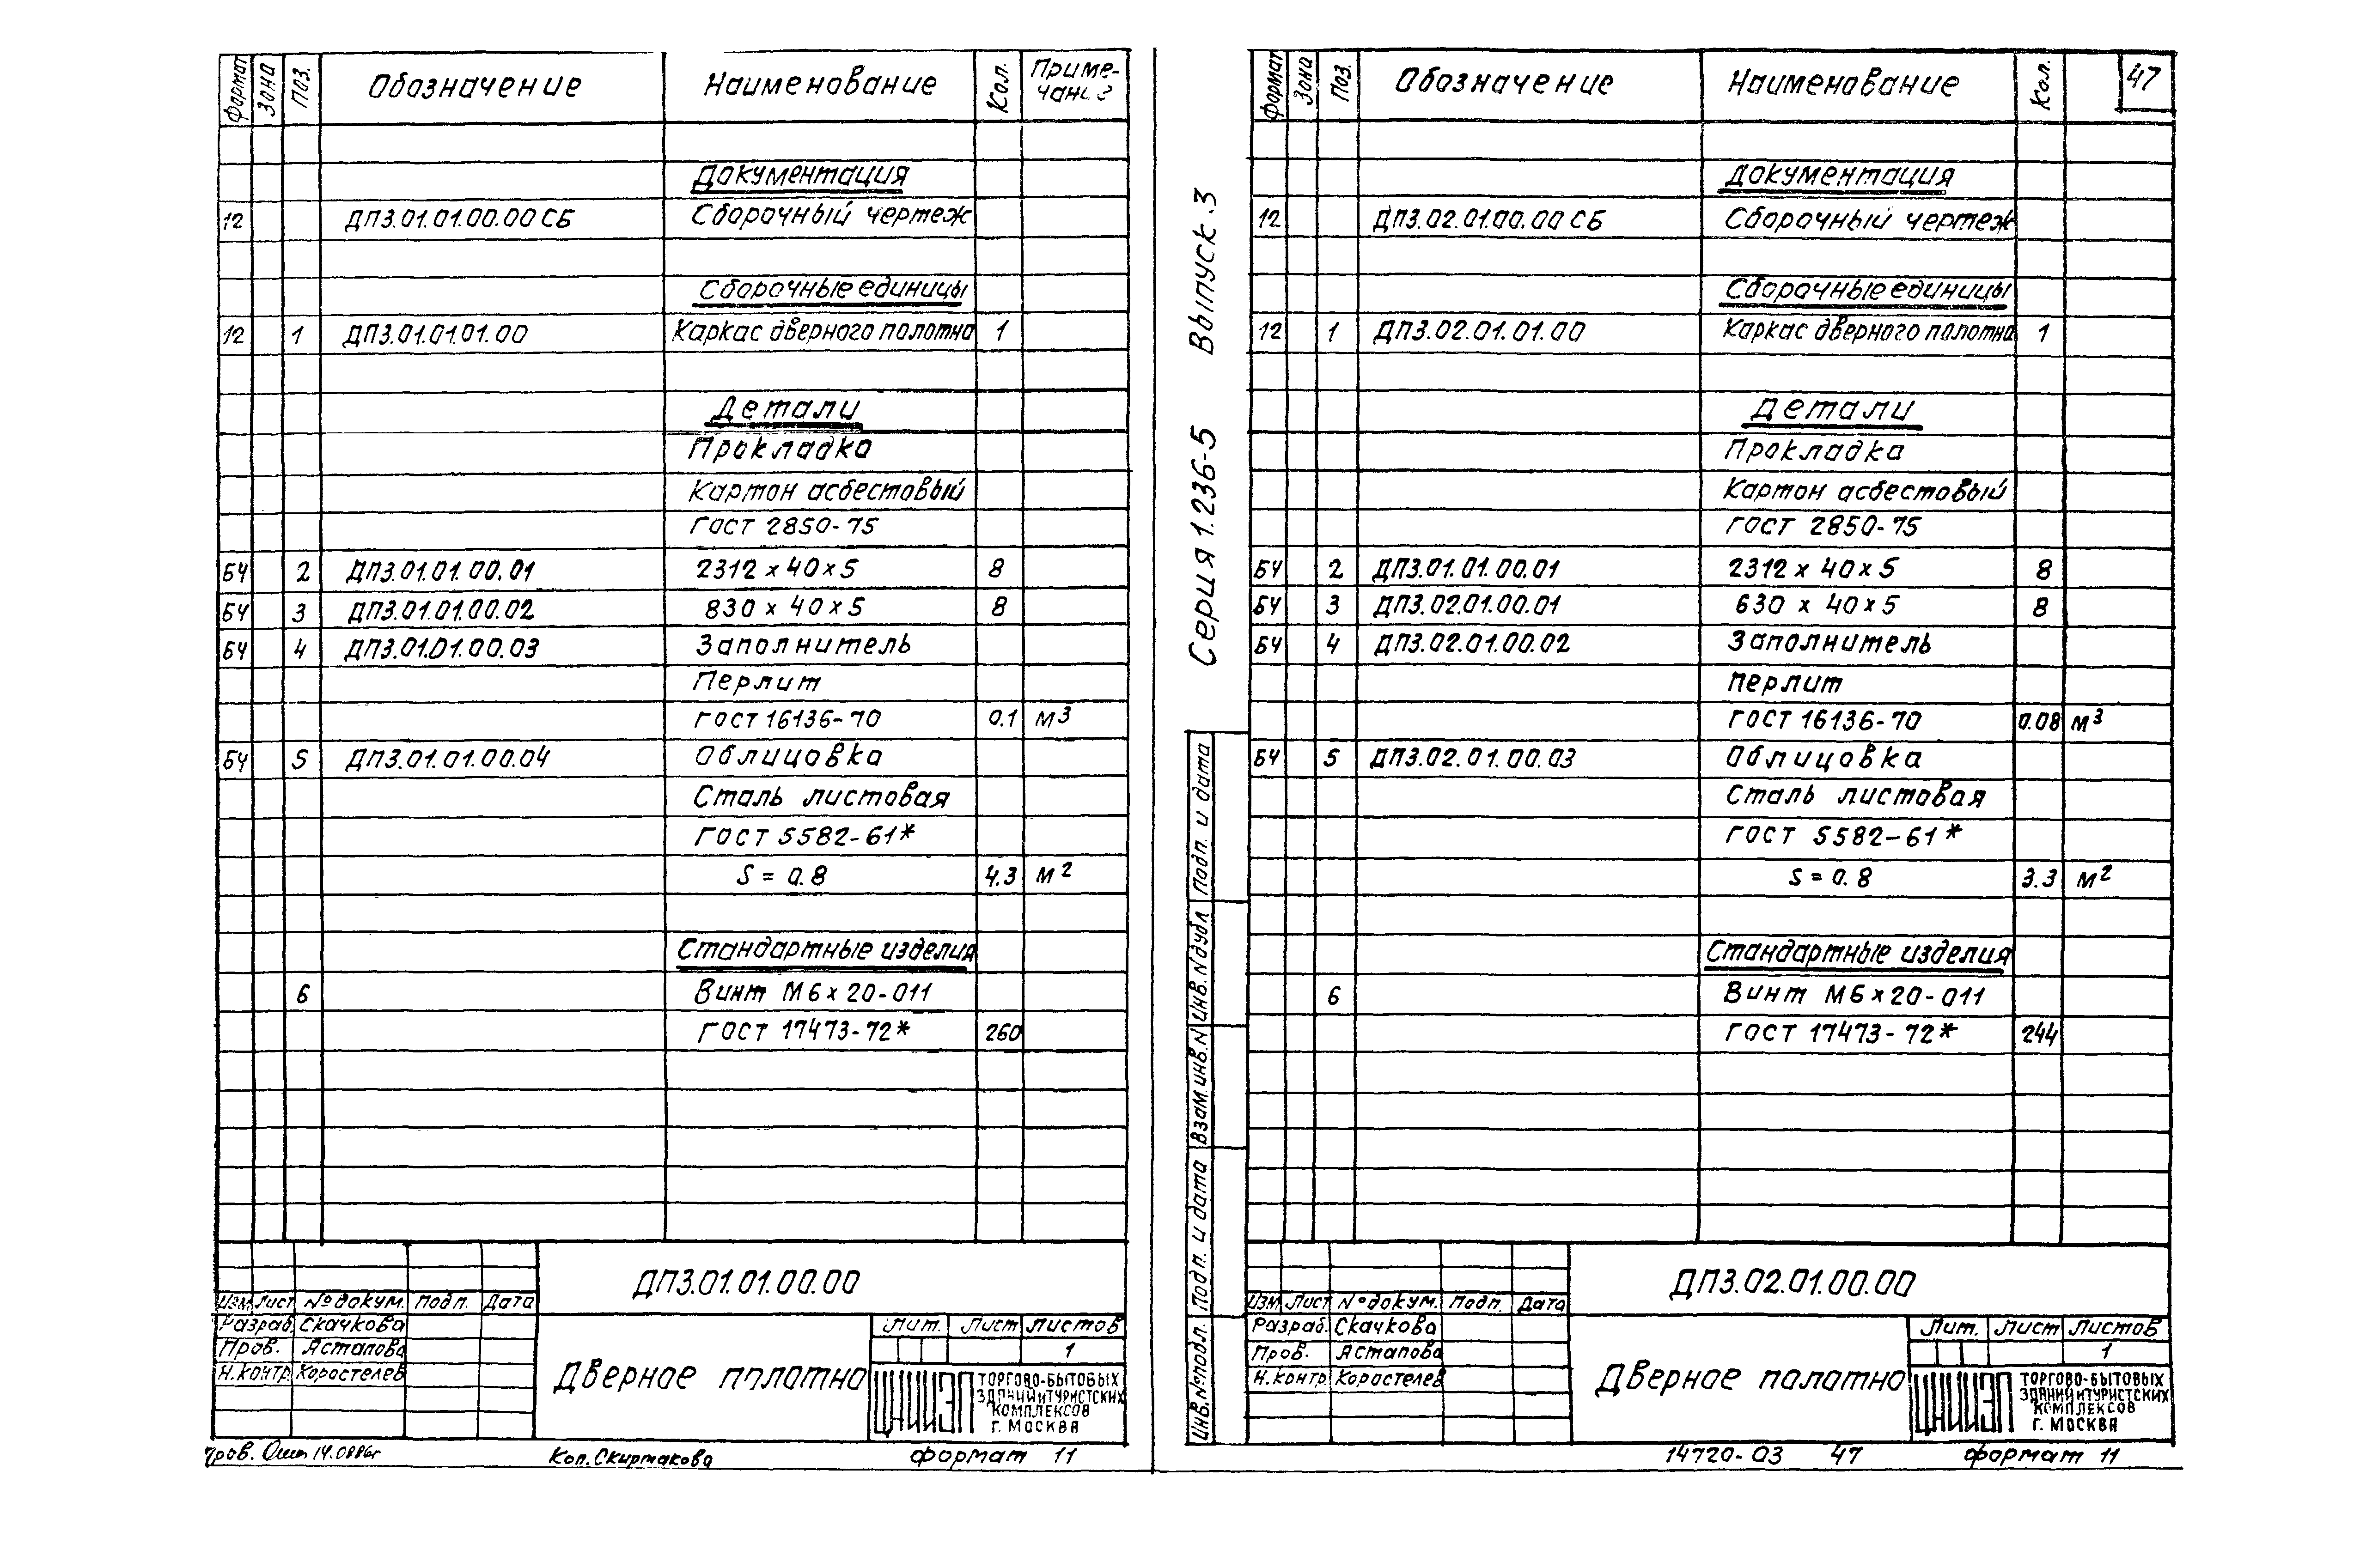 Формат Зона Поз. Обозначение Наименование Кол. Приме-
чание
Документация
12 ДП3.01.01.00.00 СБ Сборочный чертеж
Сборочные единицы
12 1 ДП3.01.01.01.00 Каркас дверного полотна 1
Детали
Прокладка
Картон асбестовый
ГОСТ 2850-75
БЧ 2 ДП3.01.01.00.01 2312 х 40 х 5 8
БЧ 3 ДП3.01.01.00.02 830 х 40 х 5 8
БЧ 4 ДП3.01.01.00.03 Заполнитель
Перлит
ГОСТ 16136-70 0.1 м3
БЧ 5 ДП3.01.01.00.04 Облицовка
Сталь листовая
ГОСТ 5582-61*
S = 0.8 4.3 м2
Стандартные изделия
6 Винт М6 х 20-011
ГОСТ 17473-72* 260
ДП3.01.01.00.00
Изм Лист № докум. Подп. Дата
Разраб. Скачкова
Пров. Астапова
Н.контр. Коростелев
Дверное полотно
Лит. Лист Листов
1
ЦНИИЭП ТОРГОВО-БЫТОВЫХ
ЗДАНИЙ И ТУРИСТСКИХ
КОМПЛЕКСОВ
Г. МОСКВА
Кол. Скиртакова формат 11
Серия 1.236-5 Выпуск. 3
Подп. и дата
Инв. N дубл
Взам. инв. N
Подп. и дата
Инв. № подл.
Формат Зона Поз. Обозначение Наименование Кол. 47
Документация
12 ДП3.02.01.00.00 СБ Сборочный чертеж
Сборочные единицы
12 1 ДП3.02.01.01.00 Каркас дверного полотна 1
Детали
Прокладка
Картон асбестовый
ГОСТ 2850-75
БЧ 2 ДП3.01.01.00.01 2312 х 40 х 5 8
БЧ 3 ДП3.02.01.00.01 630 х 40 х 5 8
БЧ 4 ДП3.02.01.00.02 Заполнитель
перлит
ГОСТ 16136-70 0.08 м3
БЧ 5 ДП3.02.01.00.03 Облицовка
Сталь листовая
ГОСТ 5582-61*
S = 0.8 3.3 м2
Стандартные изделия
6 Винт М6 х 20-011
ГОСТ 17473-72* 244
ДП3.02.01.00.00
Изм Лист № докум. Подп. Дата
Разраб. Скачкова
Пров. Астапова
Н.контр. Коростелев
Дверное полотно
Лит. Лист Листов
1
ЦНИИЭП ТОРГОВО-БЫТОВЫХ
ЗДАНИЙ И ТУРИСТСКИХ
КОМПЛЕКСОВ
Г. МОСКВА
14720-03 47 формат 11